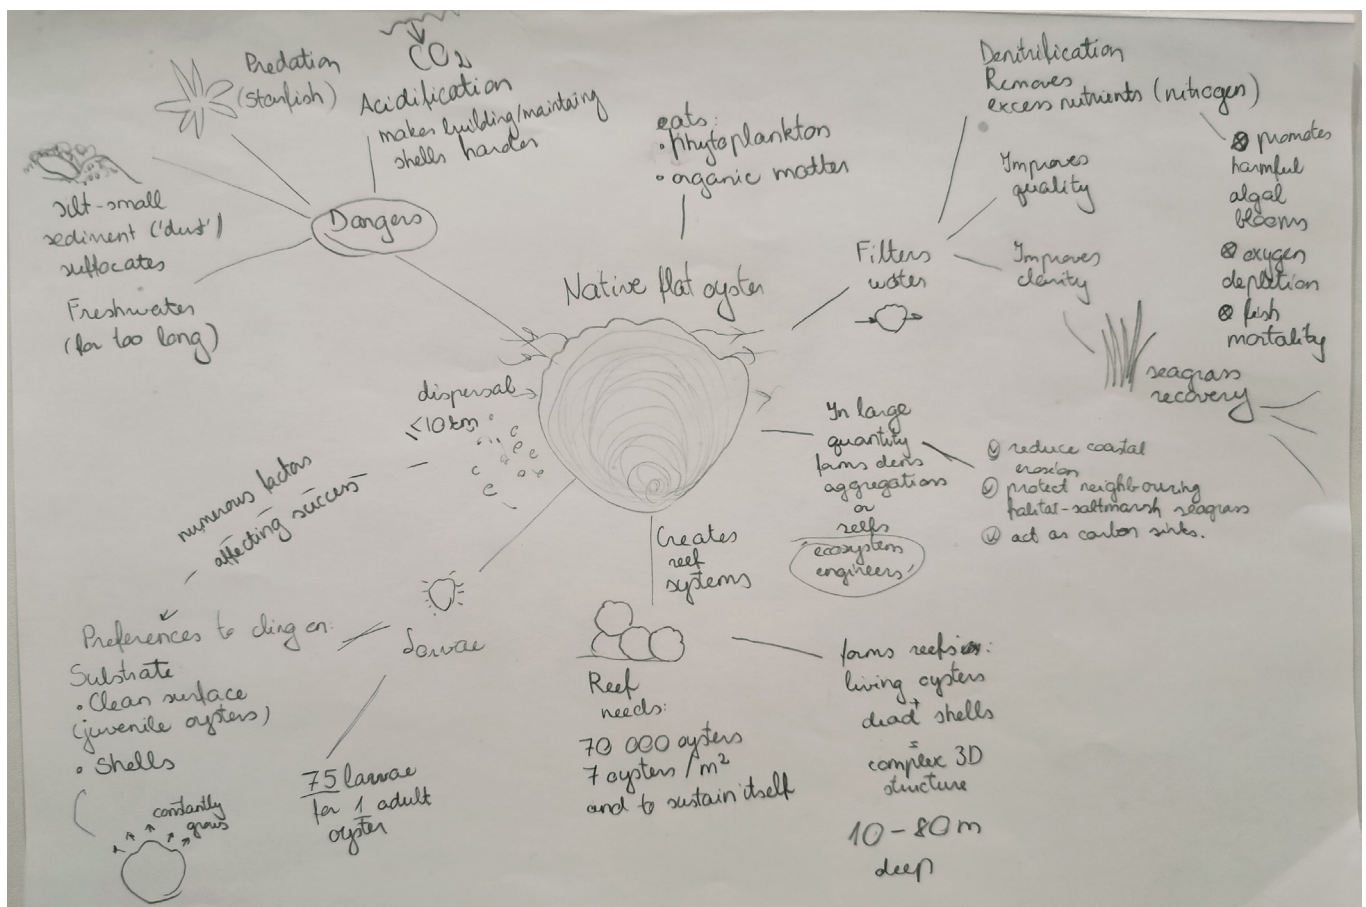 Predation
(Starfish)
CO2
Acidification
makes building/maintaing
shells harder
silt-small
sediment ('dust')
suffocates
Freshwater
(for too long)
Dangers
eats:
• Phytoplankton
• organic matter
Denitrification
Removes
excess nutrients (nitrogen)
promotes
harmful
algal
blooms
oxygen
depletion
fish
mortality
Improves
quality
Filters
water
Improves
clarity
seagrass
recovery
Native flat oyster
dispersal
<10km
numerous factors
affecting success
In large
quantity
forms dens
aggregations
or
reefs
ecosystem
engineers'
reduce coastal
erosion
protect neighbouring
habitat-saltmarsh seagrass
act as carbon sinks.
Creates
reef
systems
Preferences to cling on:
Substrate
• Clean surface
(juvenile oysters)
• Shells
constantly
grows
Larvae
75 larvae
for 1 adult
oyster
Reef
needs:
70 000 oysters
7 oysters/m²
and to sustain itself
forms reefs
living oysters
+
dead shells
=
complex 3D
structure
10-80m
deep